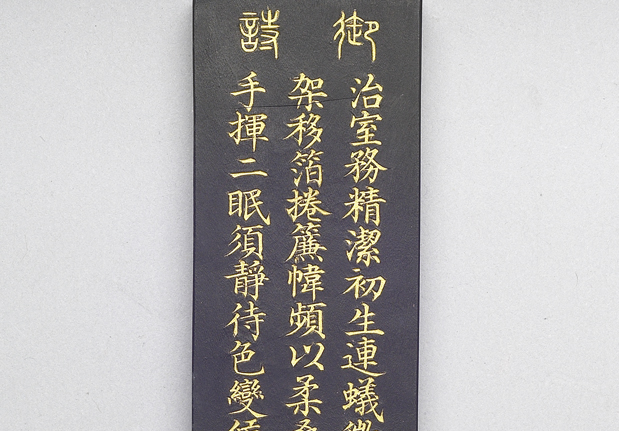 御詩
治室務精潔初生連蟻微
架移箔捲簾幃頻以柔桑
手揮二眠須靜待色變